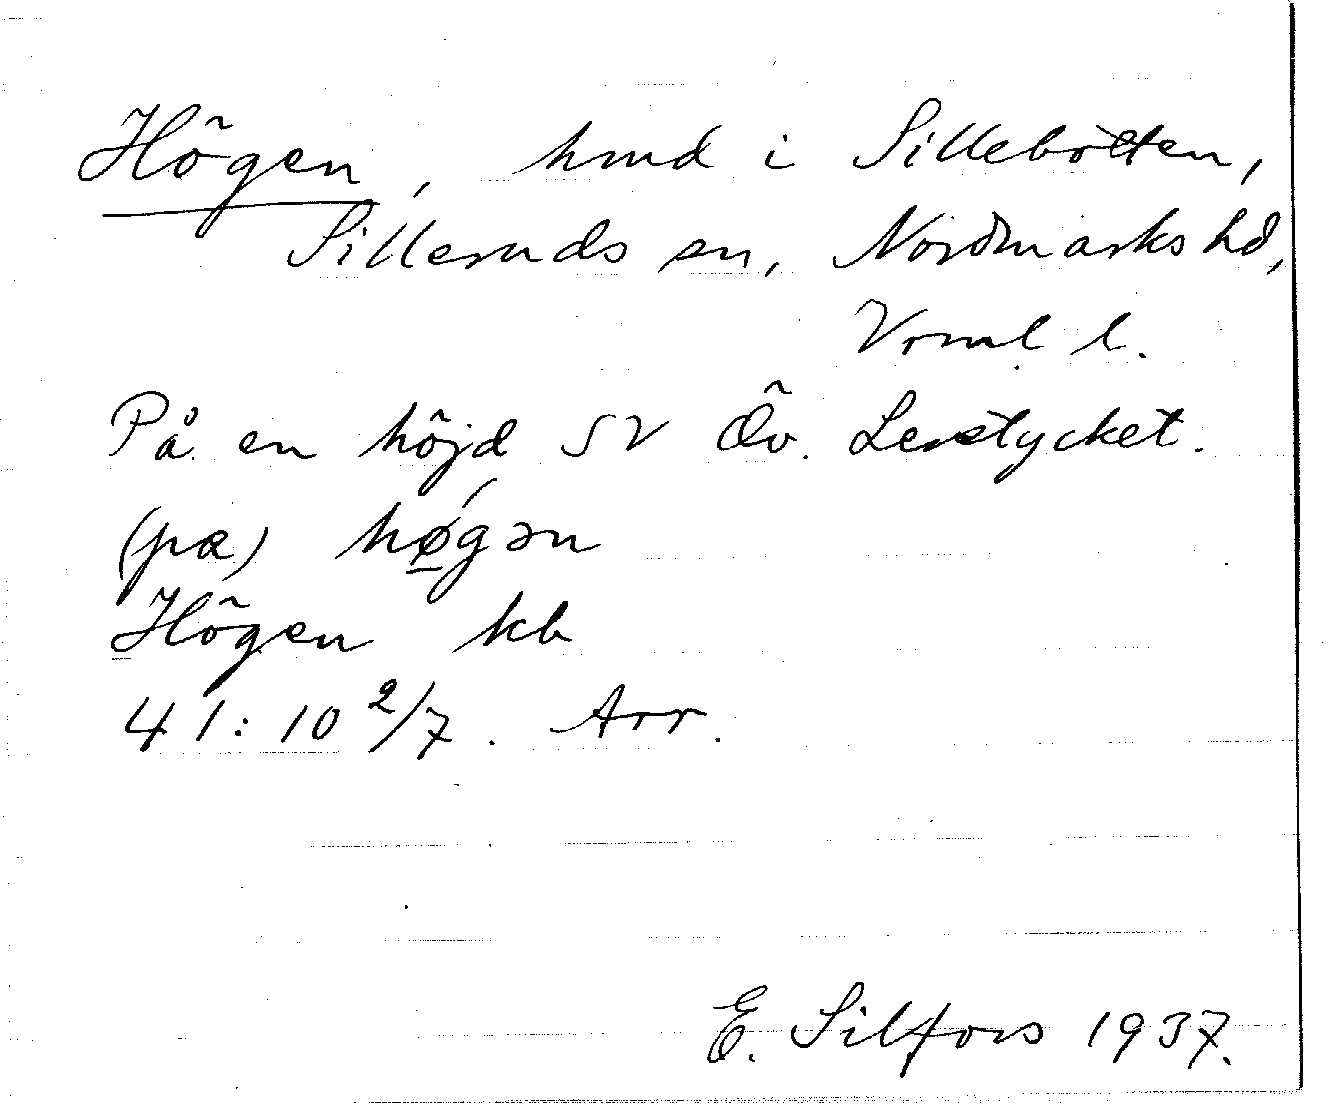 Högen, hmd i Sillebotten,
Silleruds sn, Nordmarks hd,
Vrml l.
På en höjd SV Öv. Lerstycket.
(pα) hǿ̱gən
Högen kb
41:10 2/7. Arr.
E. Silfors 1937.